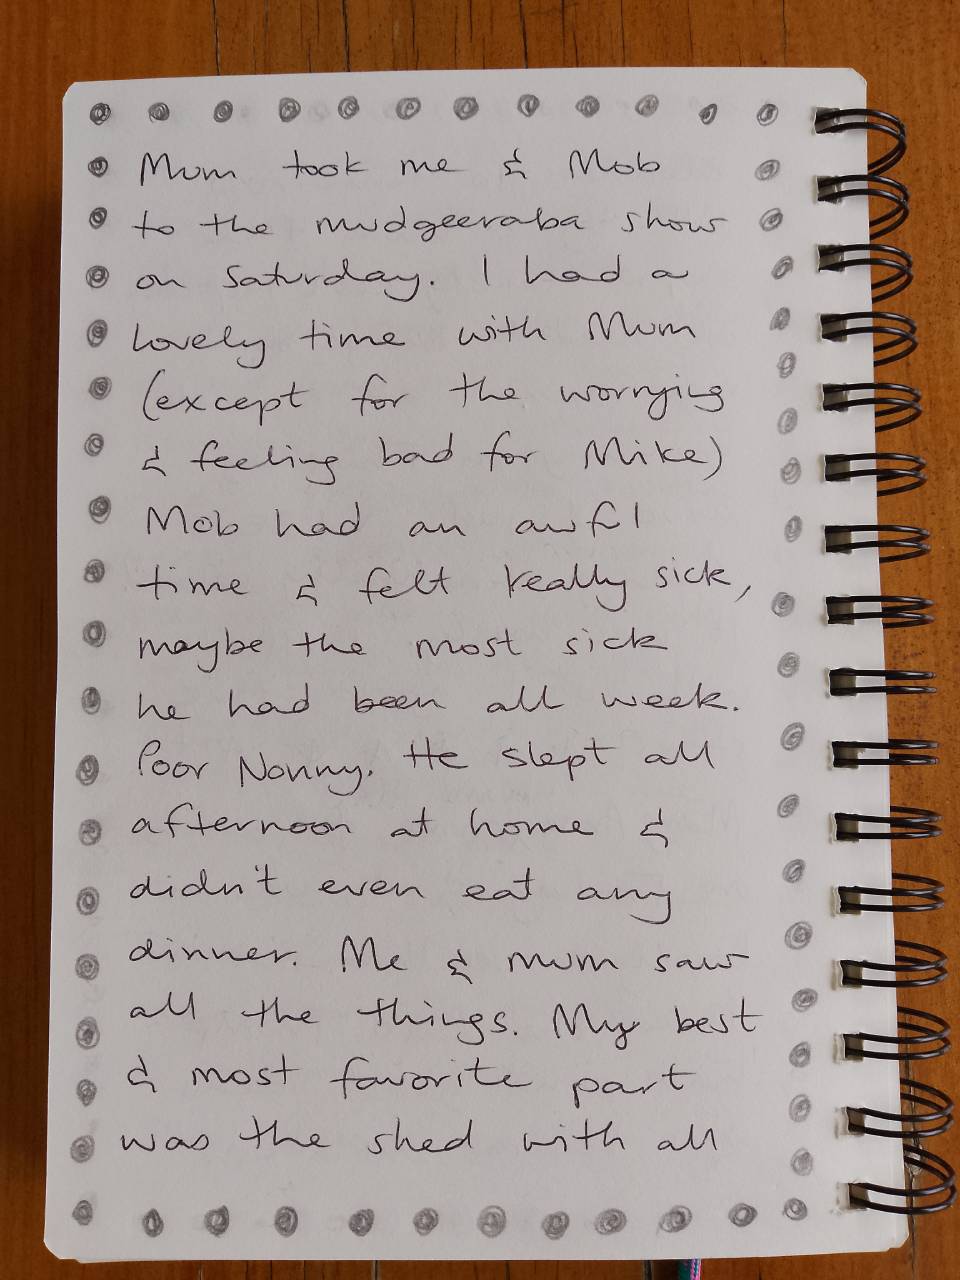 Mum took me & Mob
to the mudgeeraba show
on Saturday. I had a
lovely time with Mum
(except for the worrying
& feeling bad for Mike)
Mob had an awfl
time & felt really sick,
maybe the most sick
he had been all week.
Poor Nonny. He slept all
afternoon at home &
didn't even eat any
dinner. Me & mum saw
all the things. My best
& most favorite part
was the shed with all